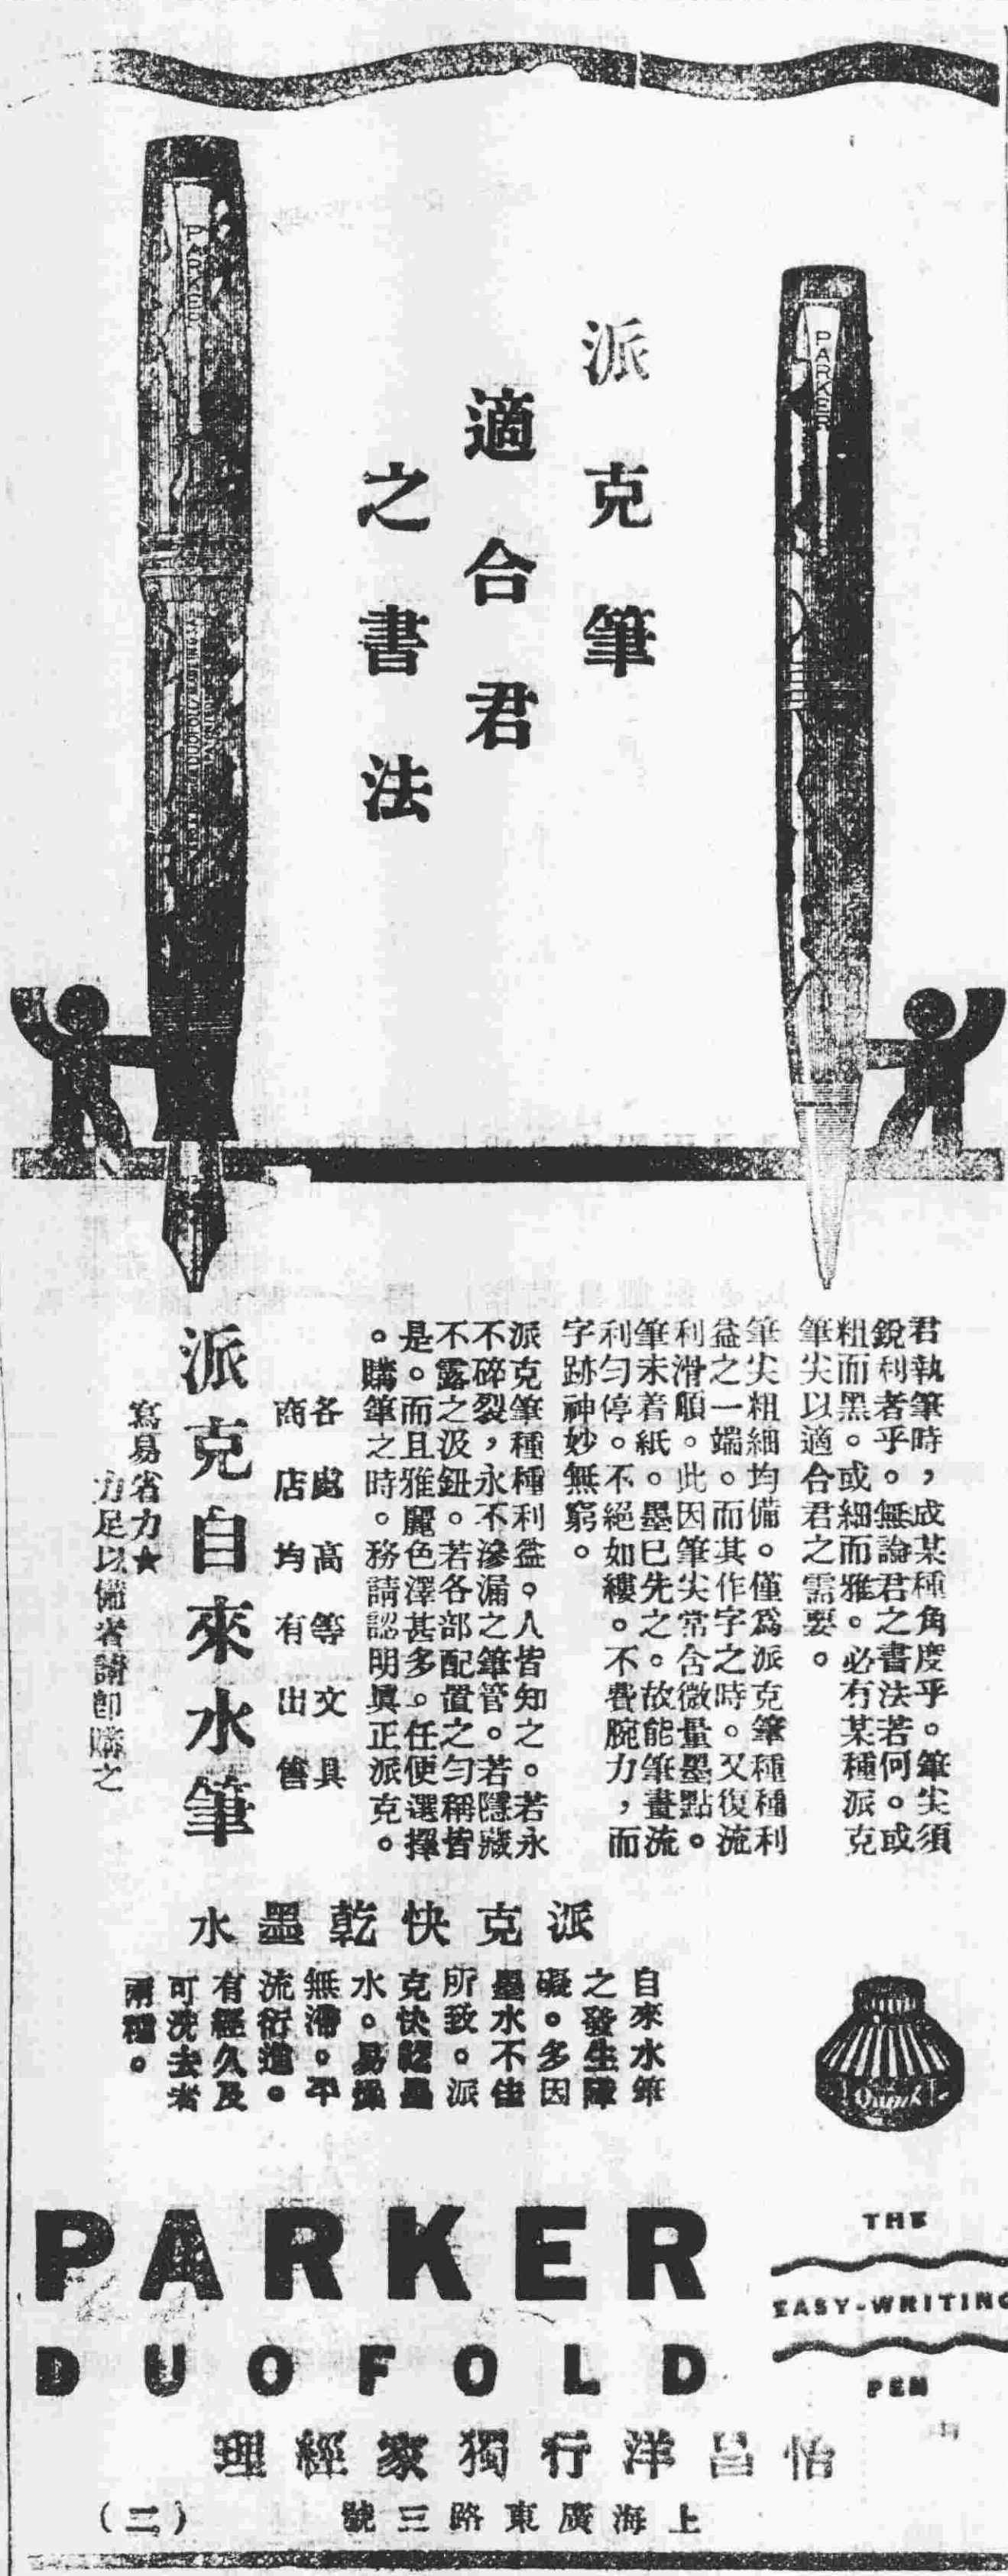 派克筆
適合君
之書法
PARKER
PARKER
君執筆時，成某種角度乎。筆尖須
銳利者乎。無論君之書法若何。或
粗而黑。或細而雅。必有某種派克
筆尖以適合君之需要。
筆尖粗細均備。僅爲派克筆種種利
益之一端。而其作字之時。又復流
利滑順。此因筆尖常含微量墨點。
筆未着紙。墨已先之。故能筆畫流
利勻停。不絕如縷。不費腕力，而
字跡神妙無窮。
派克筆種種利益。人皆知之。若永
不碎裂，永不滲漏之筆管。若隱藏
不露之汲鈕。若各部配置之勻稱皆
是。而且雅麗色澤甚多。任便選擇
。購筆之時。務請認明眞正派克。
各處高等文具
商店均有出售
派克自來水筆
寫易省力★
力足以備者請卽購之
派克快乾墨水
自來水筆
之發生障
礙。多因
墨水不佳
所致。派
克快乾墨
水。易燥
無滯。平
流衍進。
有經久及
可洗去者
兩種。
Quink
PARKER
DUOFOLD
THE
EASY-WRITING
PEN
怡昌洋行獨家經理
上海廣東路三號
（二）